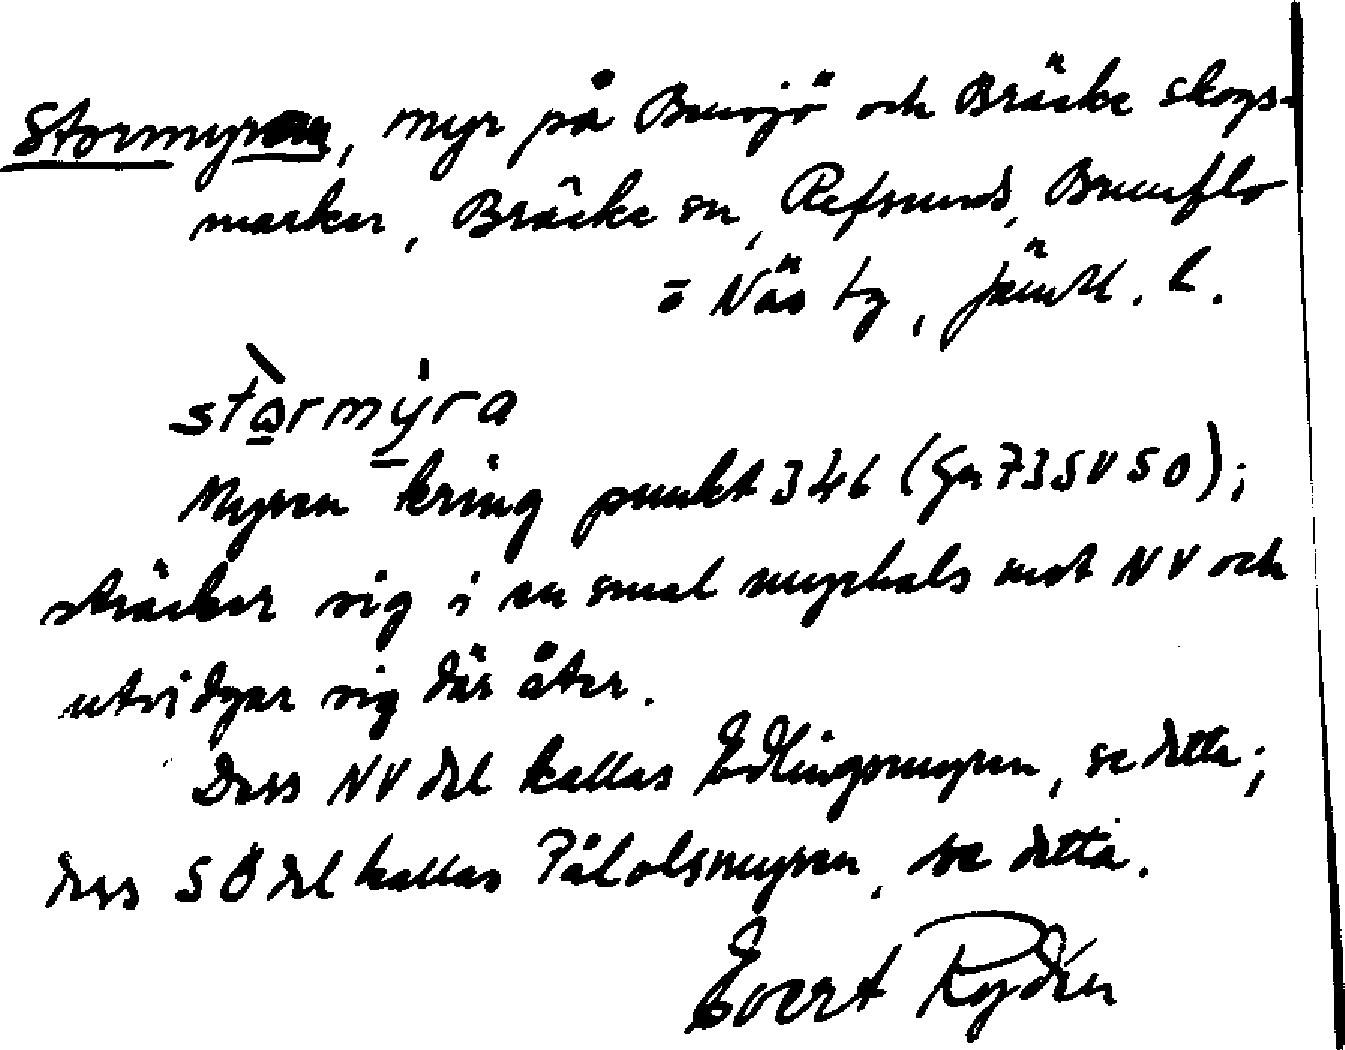 Stormyren, myr på Bensjö och Bräcke skogs-
marker, Bräcke sn, Refsunds, Brunflo
o Näs tg, Jämtl. l.
stòrmýra
Myren kring punkt 346 (Gk 73SV50);
sträcker sig i en smal myrhals mot NV och
utvidgar sig där åter.
Dess NV del kallas Edlingsmyren, se detta;
dess SÖ del kallas Pålolsmyren, se detta.
Evert Rydén